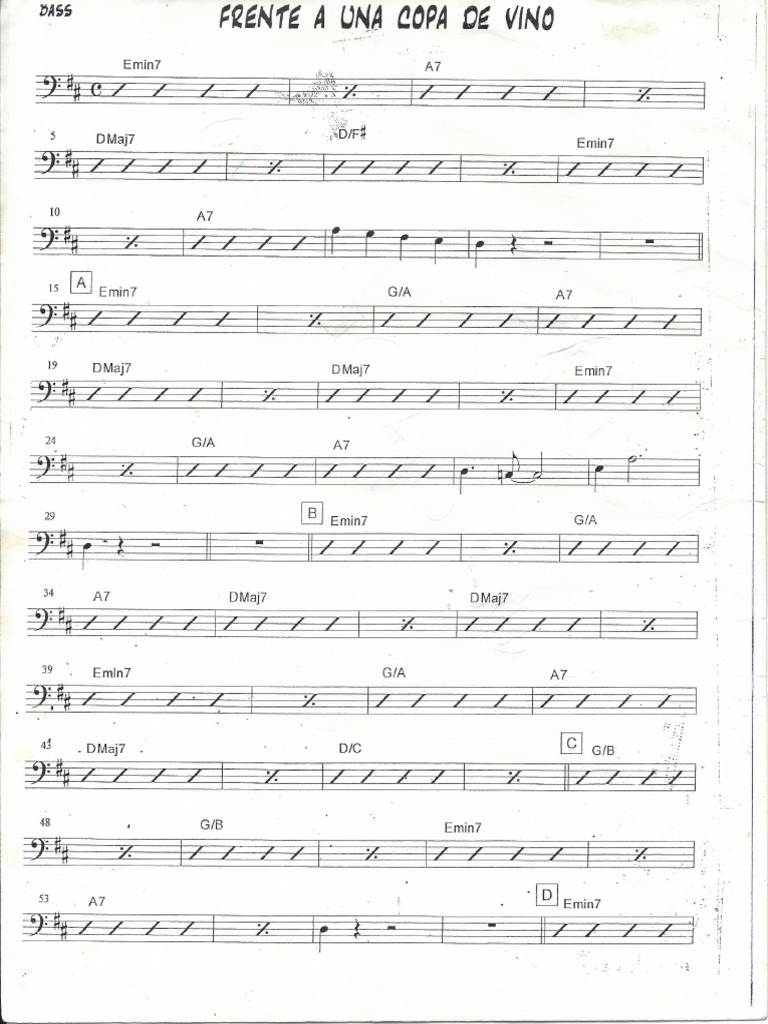 BASS
FRENTE A UNA COPA DE VINO
Emin7 A7
5 DMaj7 D/F# Emin7
10 A7
15 A Emin7 G/A A7
19 DMaj7 DMaj7 Emin7
24 G/A A7
29 B Emin7 G/A
34 A7 DMaj7 DMaj7
39 EmIn7 G/A A7
43 DMaj7 D/C C G/B
48 G/B Emin7
53 A7 D Emin7